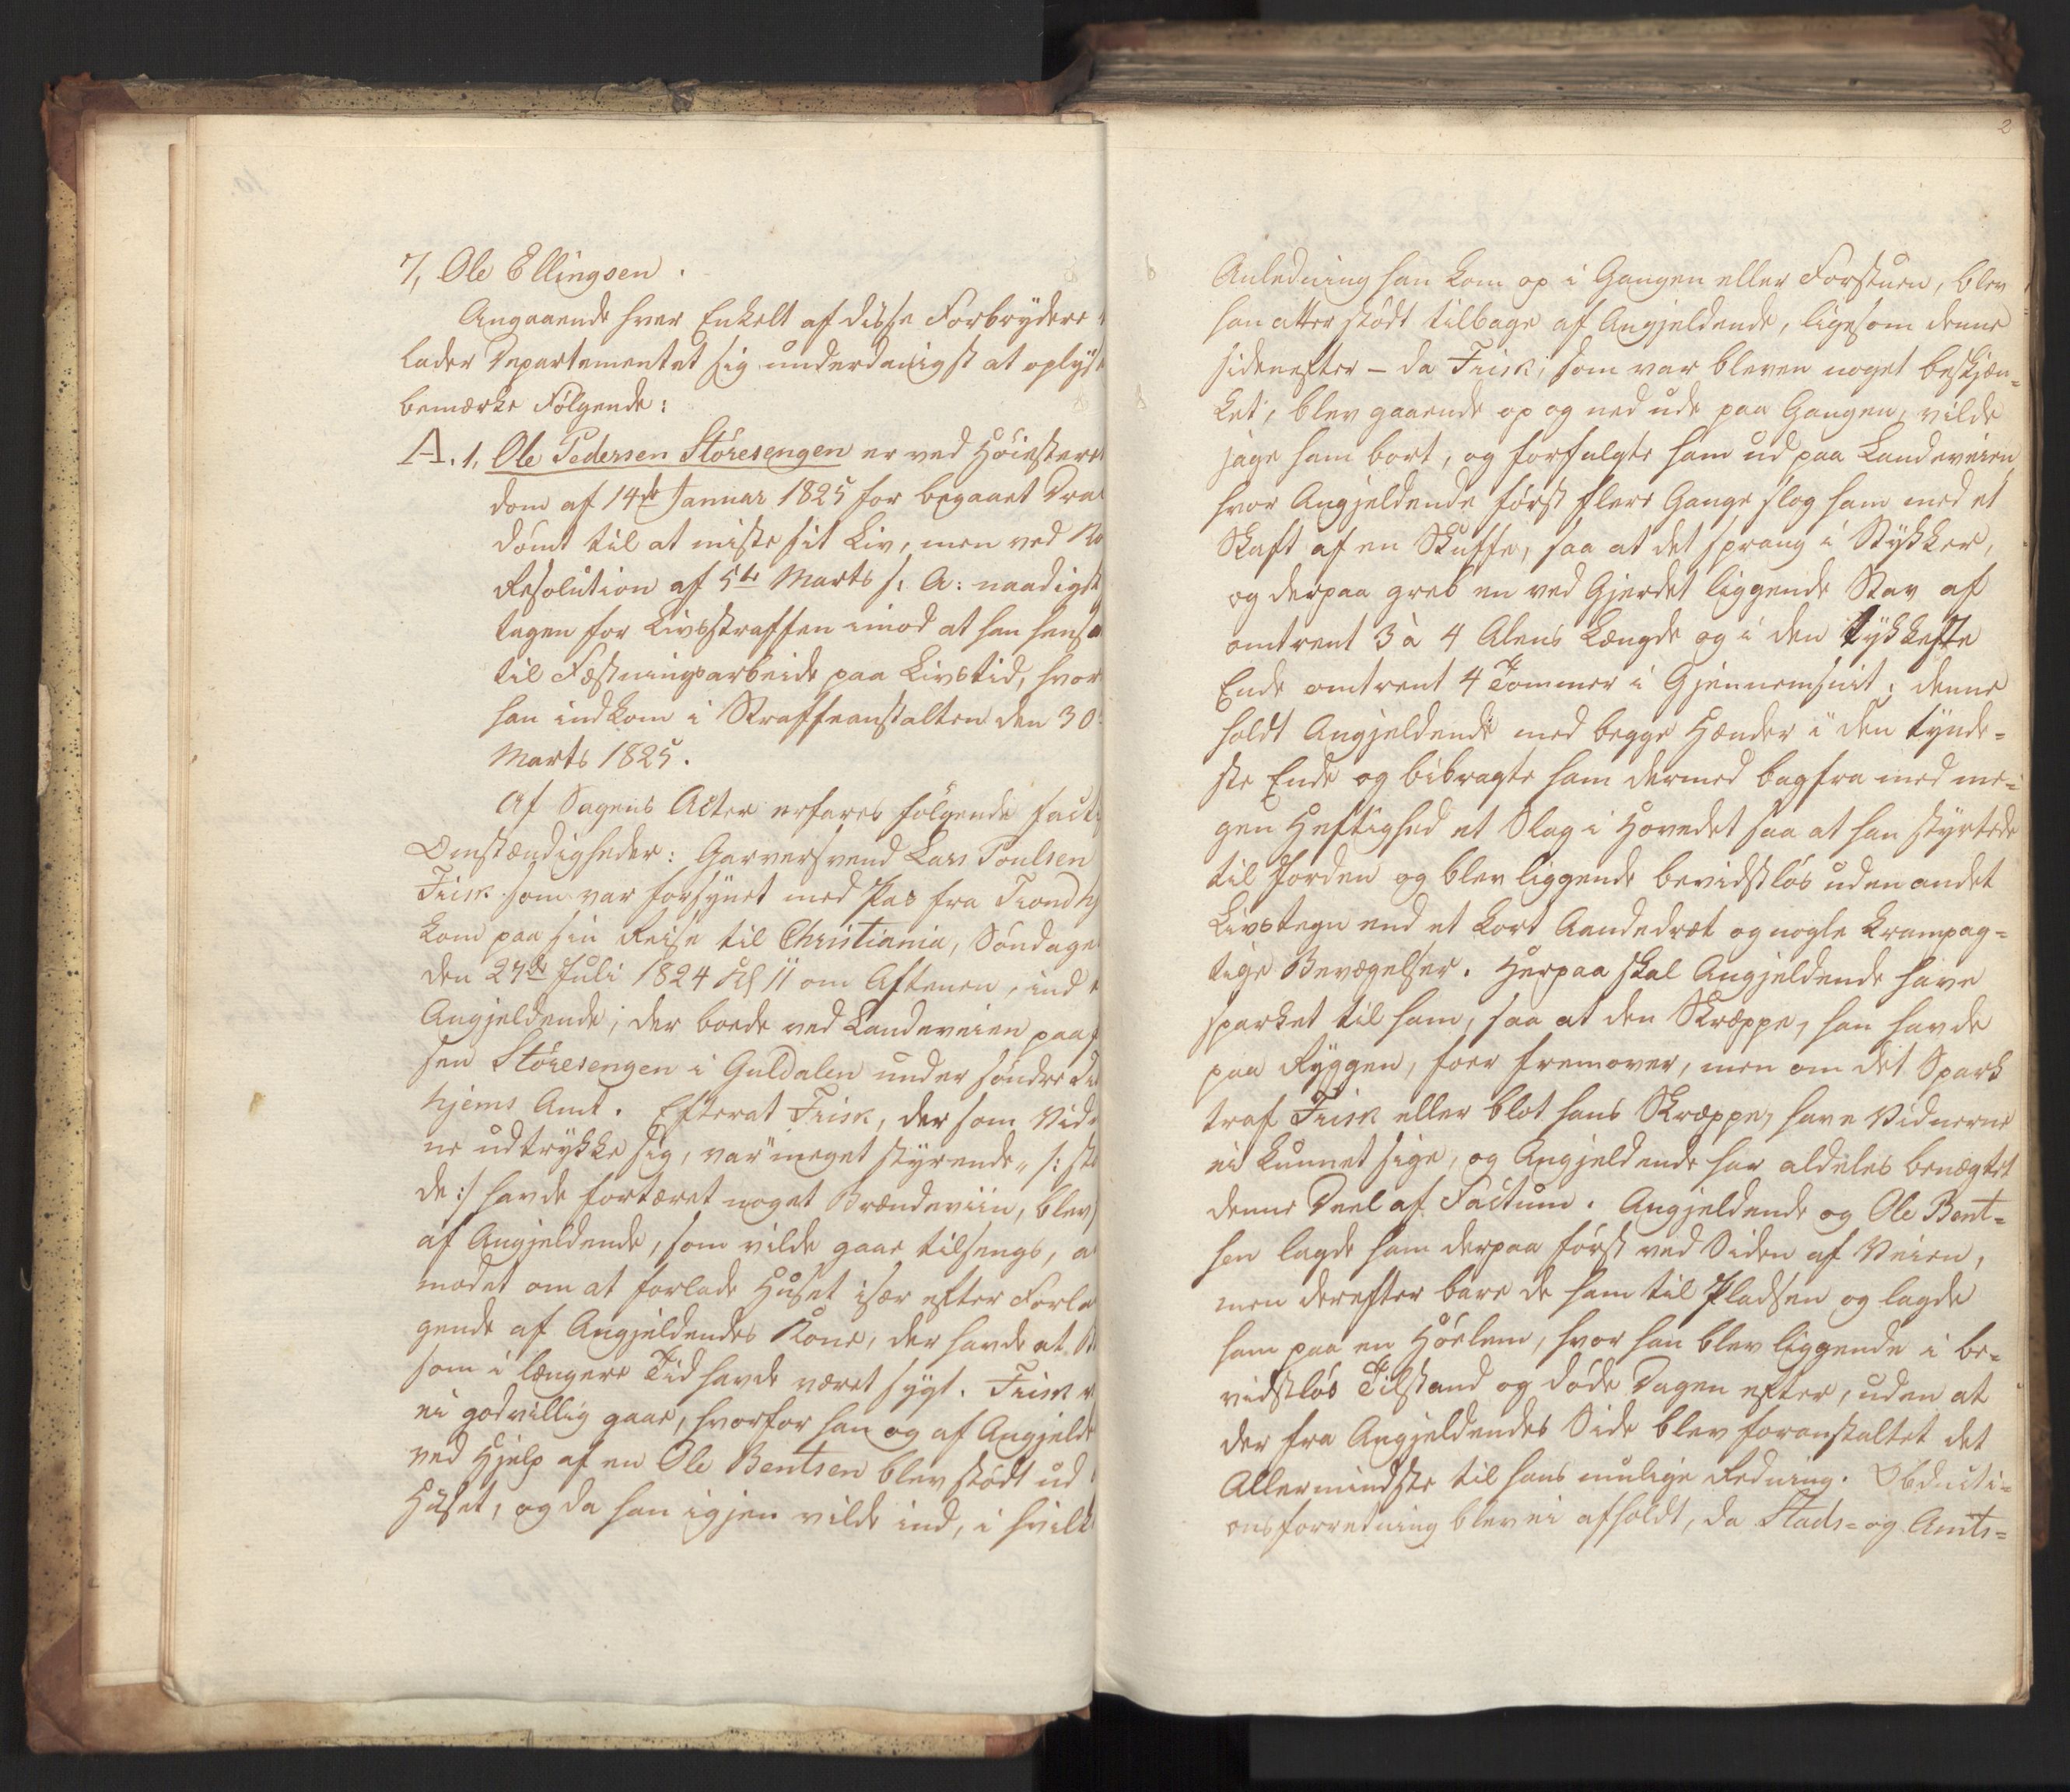 7, Ole Ellingsen.
Angaaende hver Enkelt af disse Forbrydere
lader Departementet sig underdanigst at oplyse
bemærke Følgende:
A. 1, Ole Pedersen Störesengen er ved Höiesteret
dom af 14de Januar 1825 for begaaet Dra
dömt til at miste sit Liv, men ved
Resolution af 5te Marts s: A: naadigst
tagen for Livsstraffen imod at han hensa
til Fæstningsarbeide paa Livstid, hvor
han indkom i Straffeanstalten den 30
Marts 1825.
Af Sagens Acter erfares fölgende facti
Omstændigheder: Garversvend Lars Poulsen
Frisk som var forsynet med Pas fra Trondhj
kom paa sin Reise til Christiania, Söndage
den 27de Juli 1824 Kl 11 om Aftenen, ind
Angjeldende, der boede ved Landeveien paa
sen Störesengen i Guldalen under söndre
hjems Amt. Efterat Frisk, der som Vid
ne udtrykke sig, var "meget styrende" /: 
de :/ havde fortæret noget Brændeviin, blev
af Angjeldende, som vilde gaae tilsengs, a
modet om at forlade Huset især efter Forla
gende af Angjeldendes Kone, der havde et
som i længere Tid havde været sygt. Frisk v
ei godvillig gaae, hvorfor han og af Angjelde
ved Hjelp af en Ole Bentsen blev stödt ud
Huset, og da han igjen vilde ind, i hvilk
2
Anledning han kom op i Gangen eller Forstuen, blev
han atter stödt tilbage af Angjeldende, ligesom denne
sidenefter – da Frisk, som var bleven noget beskjæn-
ket, blev gaaende op og ned ude paa Gangen, vilde
jage ham bort, og forfulgte ham ud paa Landeveien
hvor Angjeldende först flere Gange slog ham med et
Skaft af en Skuffe, saa at det sprang i Stykker,
og derpaa greb en ved Gjerdet liggende Stav af
omtrent 3 à 4 Alens Længde og i den tykkeste
Ende omtrent 4 Tommer i Gjennemsnit; denne
holdt Angjeldende med begge Hænder i den tynde-
ste Ende og bibragte ham dermed bagfra med me-
gen Heftighed et Slag i Hovedet saa at han styrtede
til Jorden og blev liggende bevidstlös uden andet
Livstegn end et kort Aandedræt og nogle krampag-
tige Bevægelser. Herpaa skal Angjeldende have
sparket til ham, saa at den Skræppe, han havde
paa Ryggen, foer fremover, men om det Spark
traf Frisk eller blot hans Skræppe, have Vidnerne
ei kunnet sige, og Angjeldende har aldeles benægtet
denne Deel af Factum. Angjeldende og Ole Bent-
sen lagde ham derpaa först ved Siden af Veien,
men derefter bare de ham til Pladsen og lagde
ham paa en Höelem, hvor han blev liggende i be-
vidstlös Tilstand og döde Dagen efter, uden at
der fra Angjeldendes Side blev foranstaltet det
Allermindste til hans mulige Redning. Obducti-
onsforretning blev ei afholdt, da Stads- og Amts-